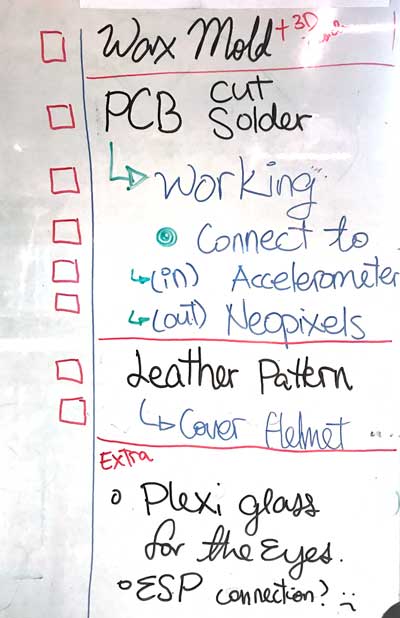 Wax Mold +3D
PCB cut
Solder
Working
Connect to
(in) Accelerometer
(out) Neopixels
Leather Pattern
Cover Helmet ...
Extra
Plexi glass
for the Eyes.
ESP connection?